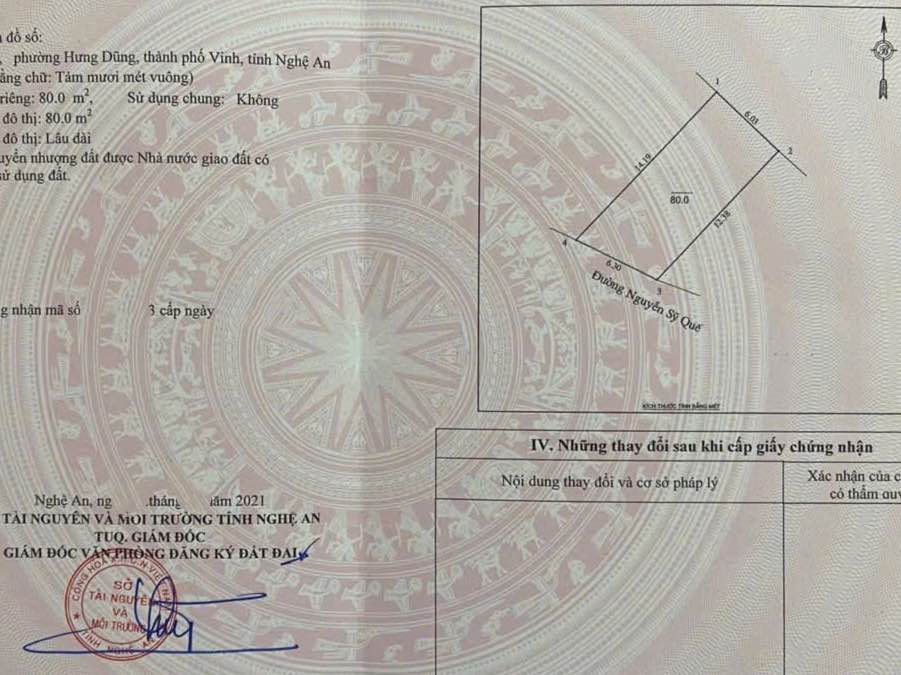 đồ số:
phường Hưng Dũng, thành phố Vinh, tỉnh Nghệ An
bằng chữ: Tám mươi mét vuông)
riêng: 80.0 m², Sử dụng chung: Không
đô thị: 80.0 m²
đô thị: Lâu dài
uyển nhượng đất được Nhà nước giao đất có
sử dụng đất.
g nhận mã số 3 cấp ngày
Nghệ An, ng .tháng năm 2021
TÀI NGUYÊN VÀ MÔI TRƯỜNG TỈNH NGHỆ AN
TUQ. GIÁM ĐỐC
GIÁM ĐỐC VĂN PHÒNG ĐĂNG KÝ ĐẤT ĐAI
SỞ
TÀI NGUYÊN
VÀ
MÔI TRƯỜNG
TỈNH NGHỆ AN
B
1
6.03
2
14.19
80.0
12.38
4
6.30
3
Đường Nguyễn Sỹ Quế
KÍCH THƯỚC TÍNH BẰNG MÉT
IV. Những thay đổi sau khi cấp giấy chứng nhận
Nội dung thay đổi và cơ sở pháp lý
Xác nhận của c
có thẩm quy